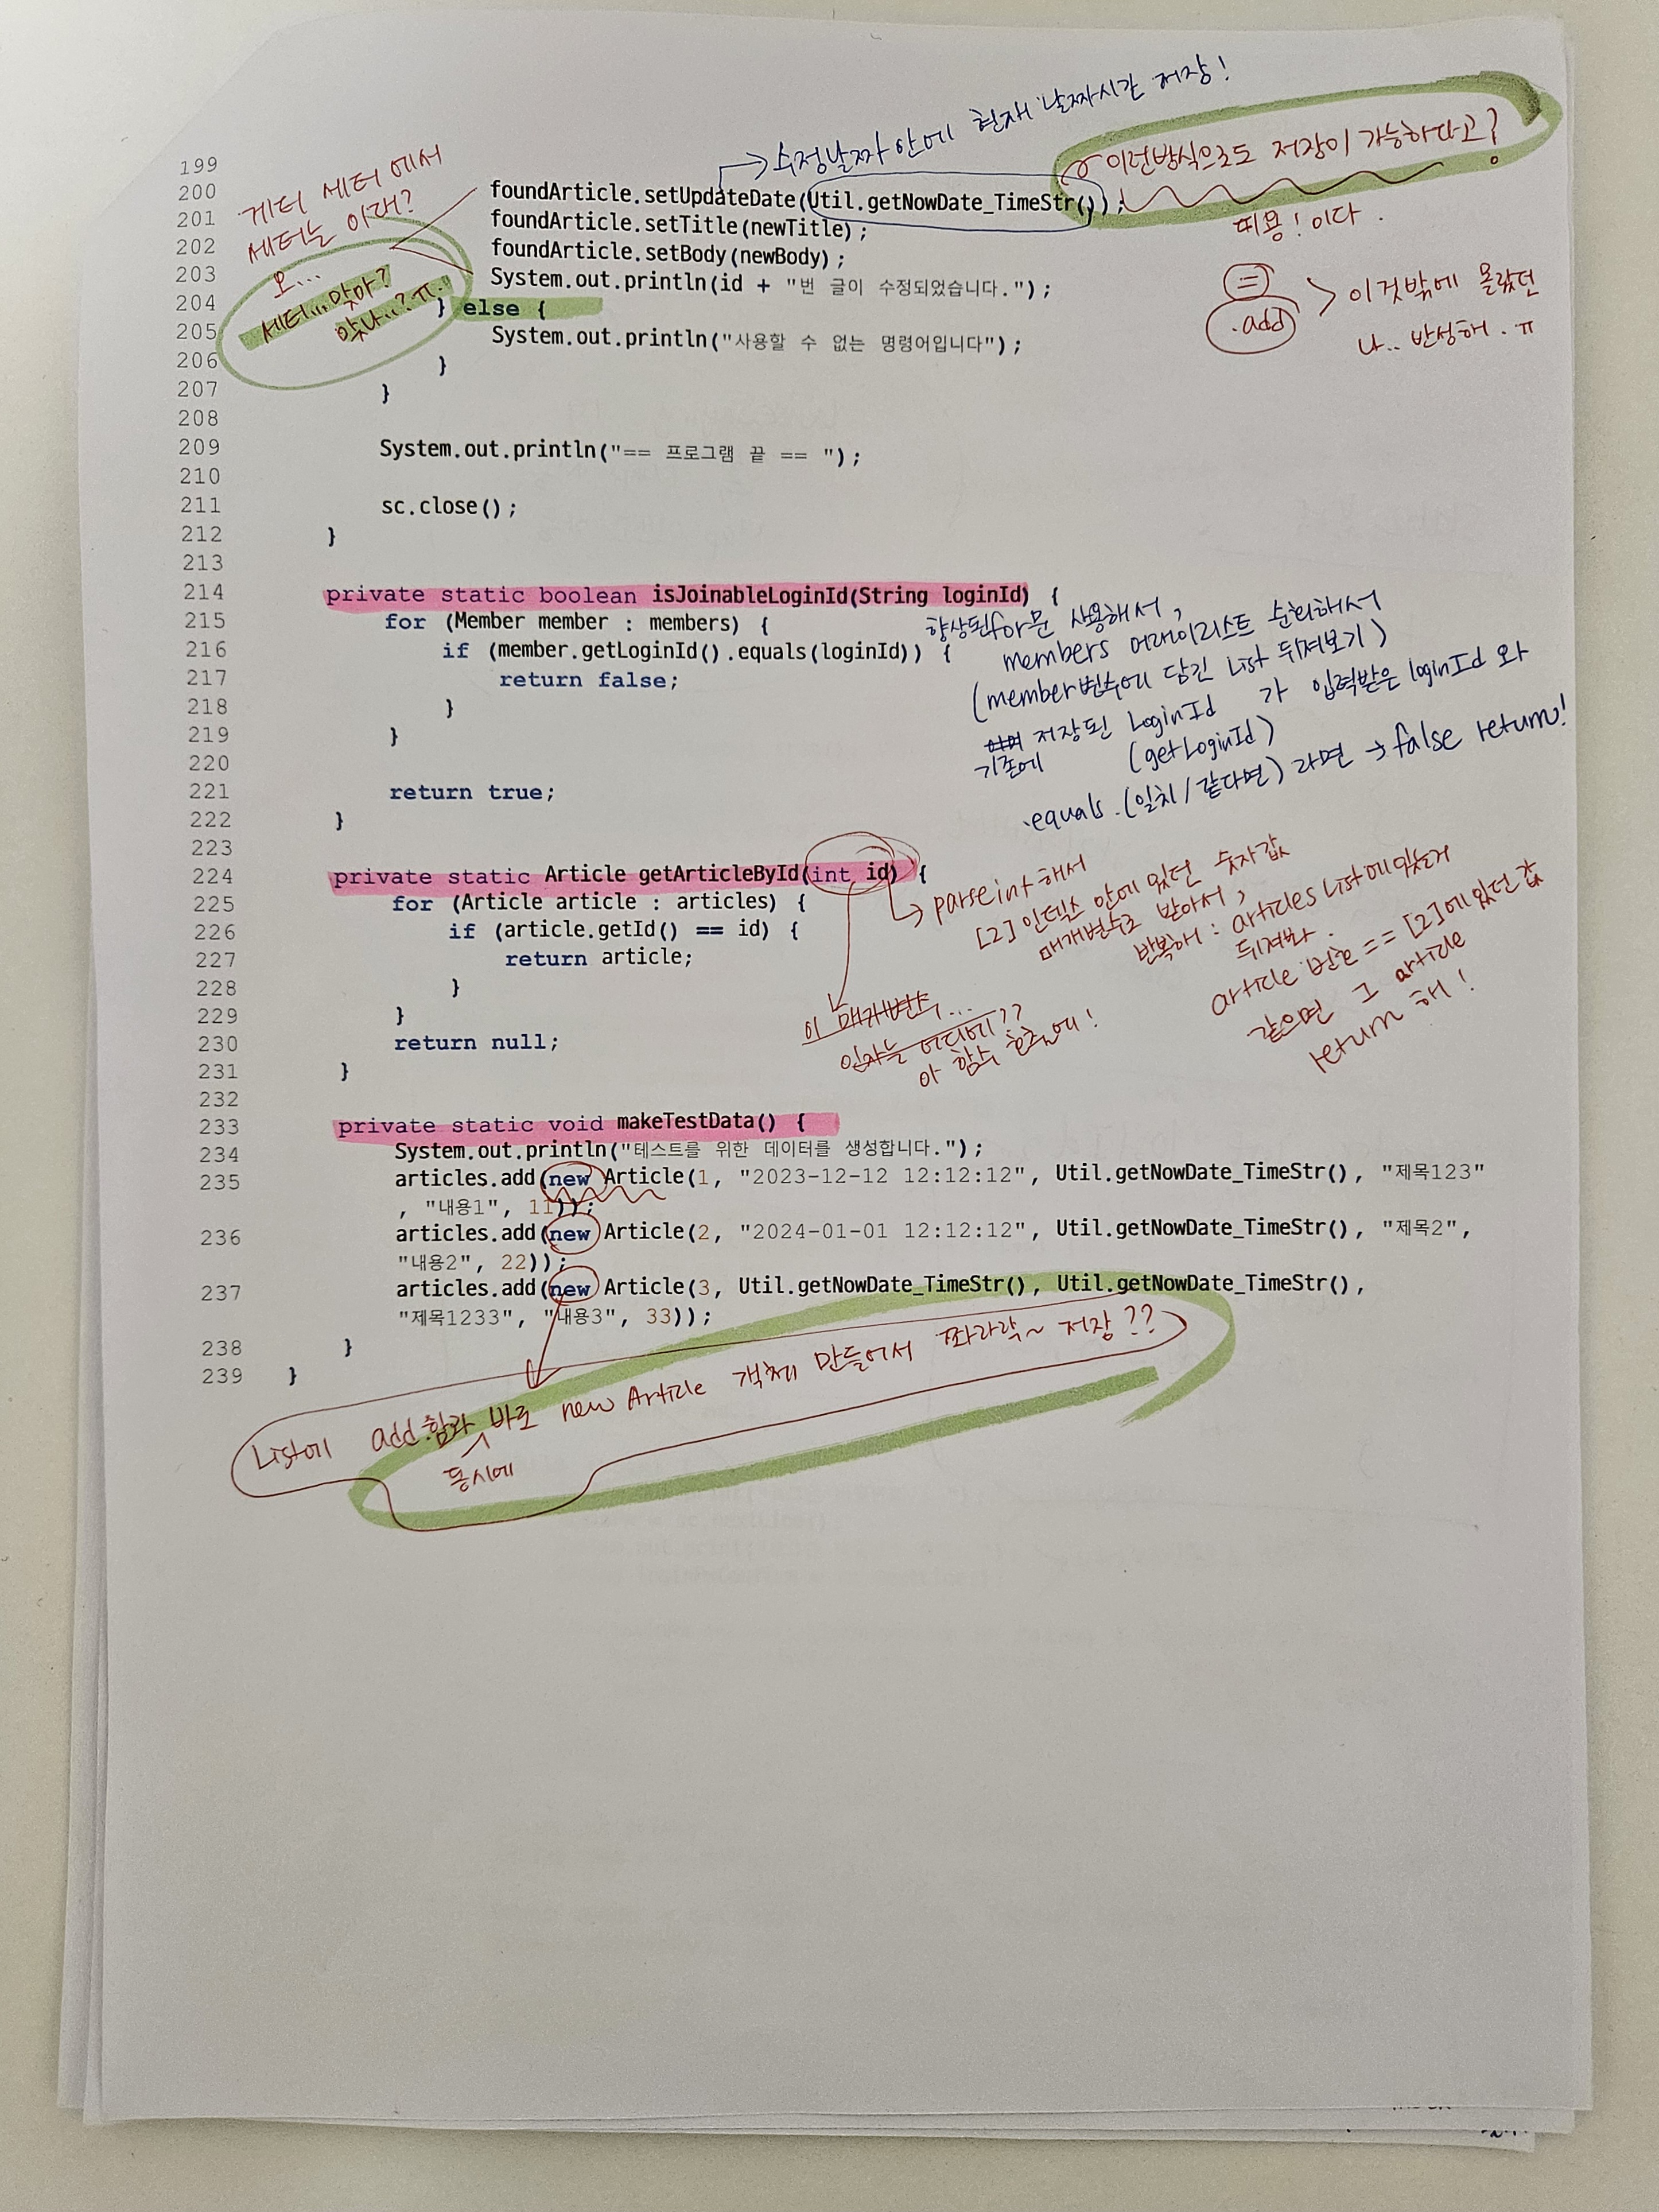 수정날짜 안에 현재 날짜시간 저장!
이런방식으로도 저장이 가능하다고?
띠용! 이다.
게터 세터 에서
세터는 이래?
오...
세터... 맞아?
맞나..? ㅠ.
=
.add
이것밖에 몰랐던
나.. 반성해. ㅠ
199
200 foundArticle.setUpdateDate(Util.getNowDate_TimeStr());
201 foundArticle.setTitle(newTitle);
202 foundArticle.setBody(newBody);
203 System.out.println(id + "번 글이 수정되었습니다.");
204 } else {
205 System.out.println("사용할 수 없는 명령어입니다");
206 }
207 }
208
209 System.out.println("== 프로그램 끝 == ");
210
211 sc.close();
212 }
213
214 private static boolean isJoinableLoginId(String loginId) {
215 for (Member member : members) {
216 if (member.getLoginId().equals(loginId)) {
217 return false;
218 }
219 }
220
221 return true;
222 }
223
향상된for문 사용해서,
members 어레이리스트 순회해서
(member변수에 담긴 List 뒤져보기)
기존에 저장된 LoginId 가 입력받은 loginId 와
(getLoginId)
.equals.(일치/같다면) 라면 → false return!
224 private static Article getArticleById(int id) {
225 for (Article article : articles) {
226 if (article.getId() == id) {
227 return article;
228 }
229 }
230 return null;
231 }
232
parseint 해서
[2] 인덱스 안에 있던 숫자값
매개변수로 받아서,
반복해 : articles List에있는거
뒤져봐.
article 번호 == [2]에 있던 값
같으면 그 article
return 해!
이 매개변수...
인자는 어디에??
아 함수 호출에!
233 private static void makeTestData() {
234 System.out.println("테스트를 위한 데이터를 생성합니다.");
235 articles.add(new Article(1, "2023-12-12 12:12:12", Util.getNowDate_TimeStr(), "제목123"
, "내용1", 11));
236 articles.add(new Article(2, "2024-01-01 12:12:12", Util.getNowDate_TimeStr(), "제목2",
"내용2", 22));
237 articles.add(new Article(3, Util.getNowDate_TimeStr(), Util.getNowDate_TimeStr(),
"제목1233", "내용3", 33));
238 }
239 }
List에 add.함과 바로 new Article 객체 만들어서 쫘라락~ 저장??
동시에